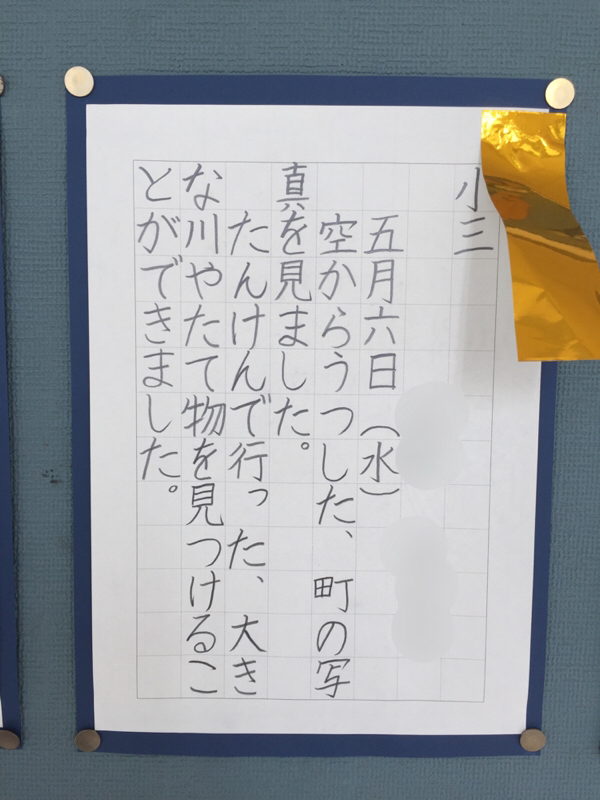 小三
五月六日（水）
空からうつした、町の写
真を見ました。
たんけんで行った、大き
な川やたて物を見つけるこ
とができました。